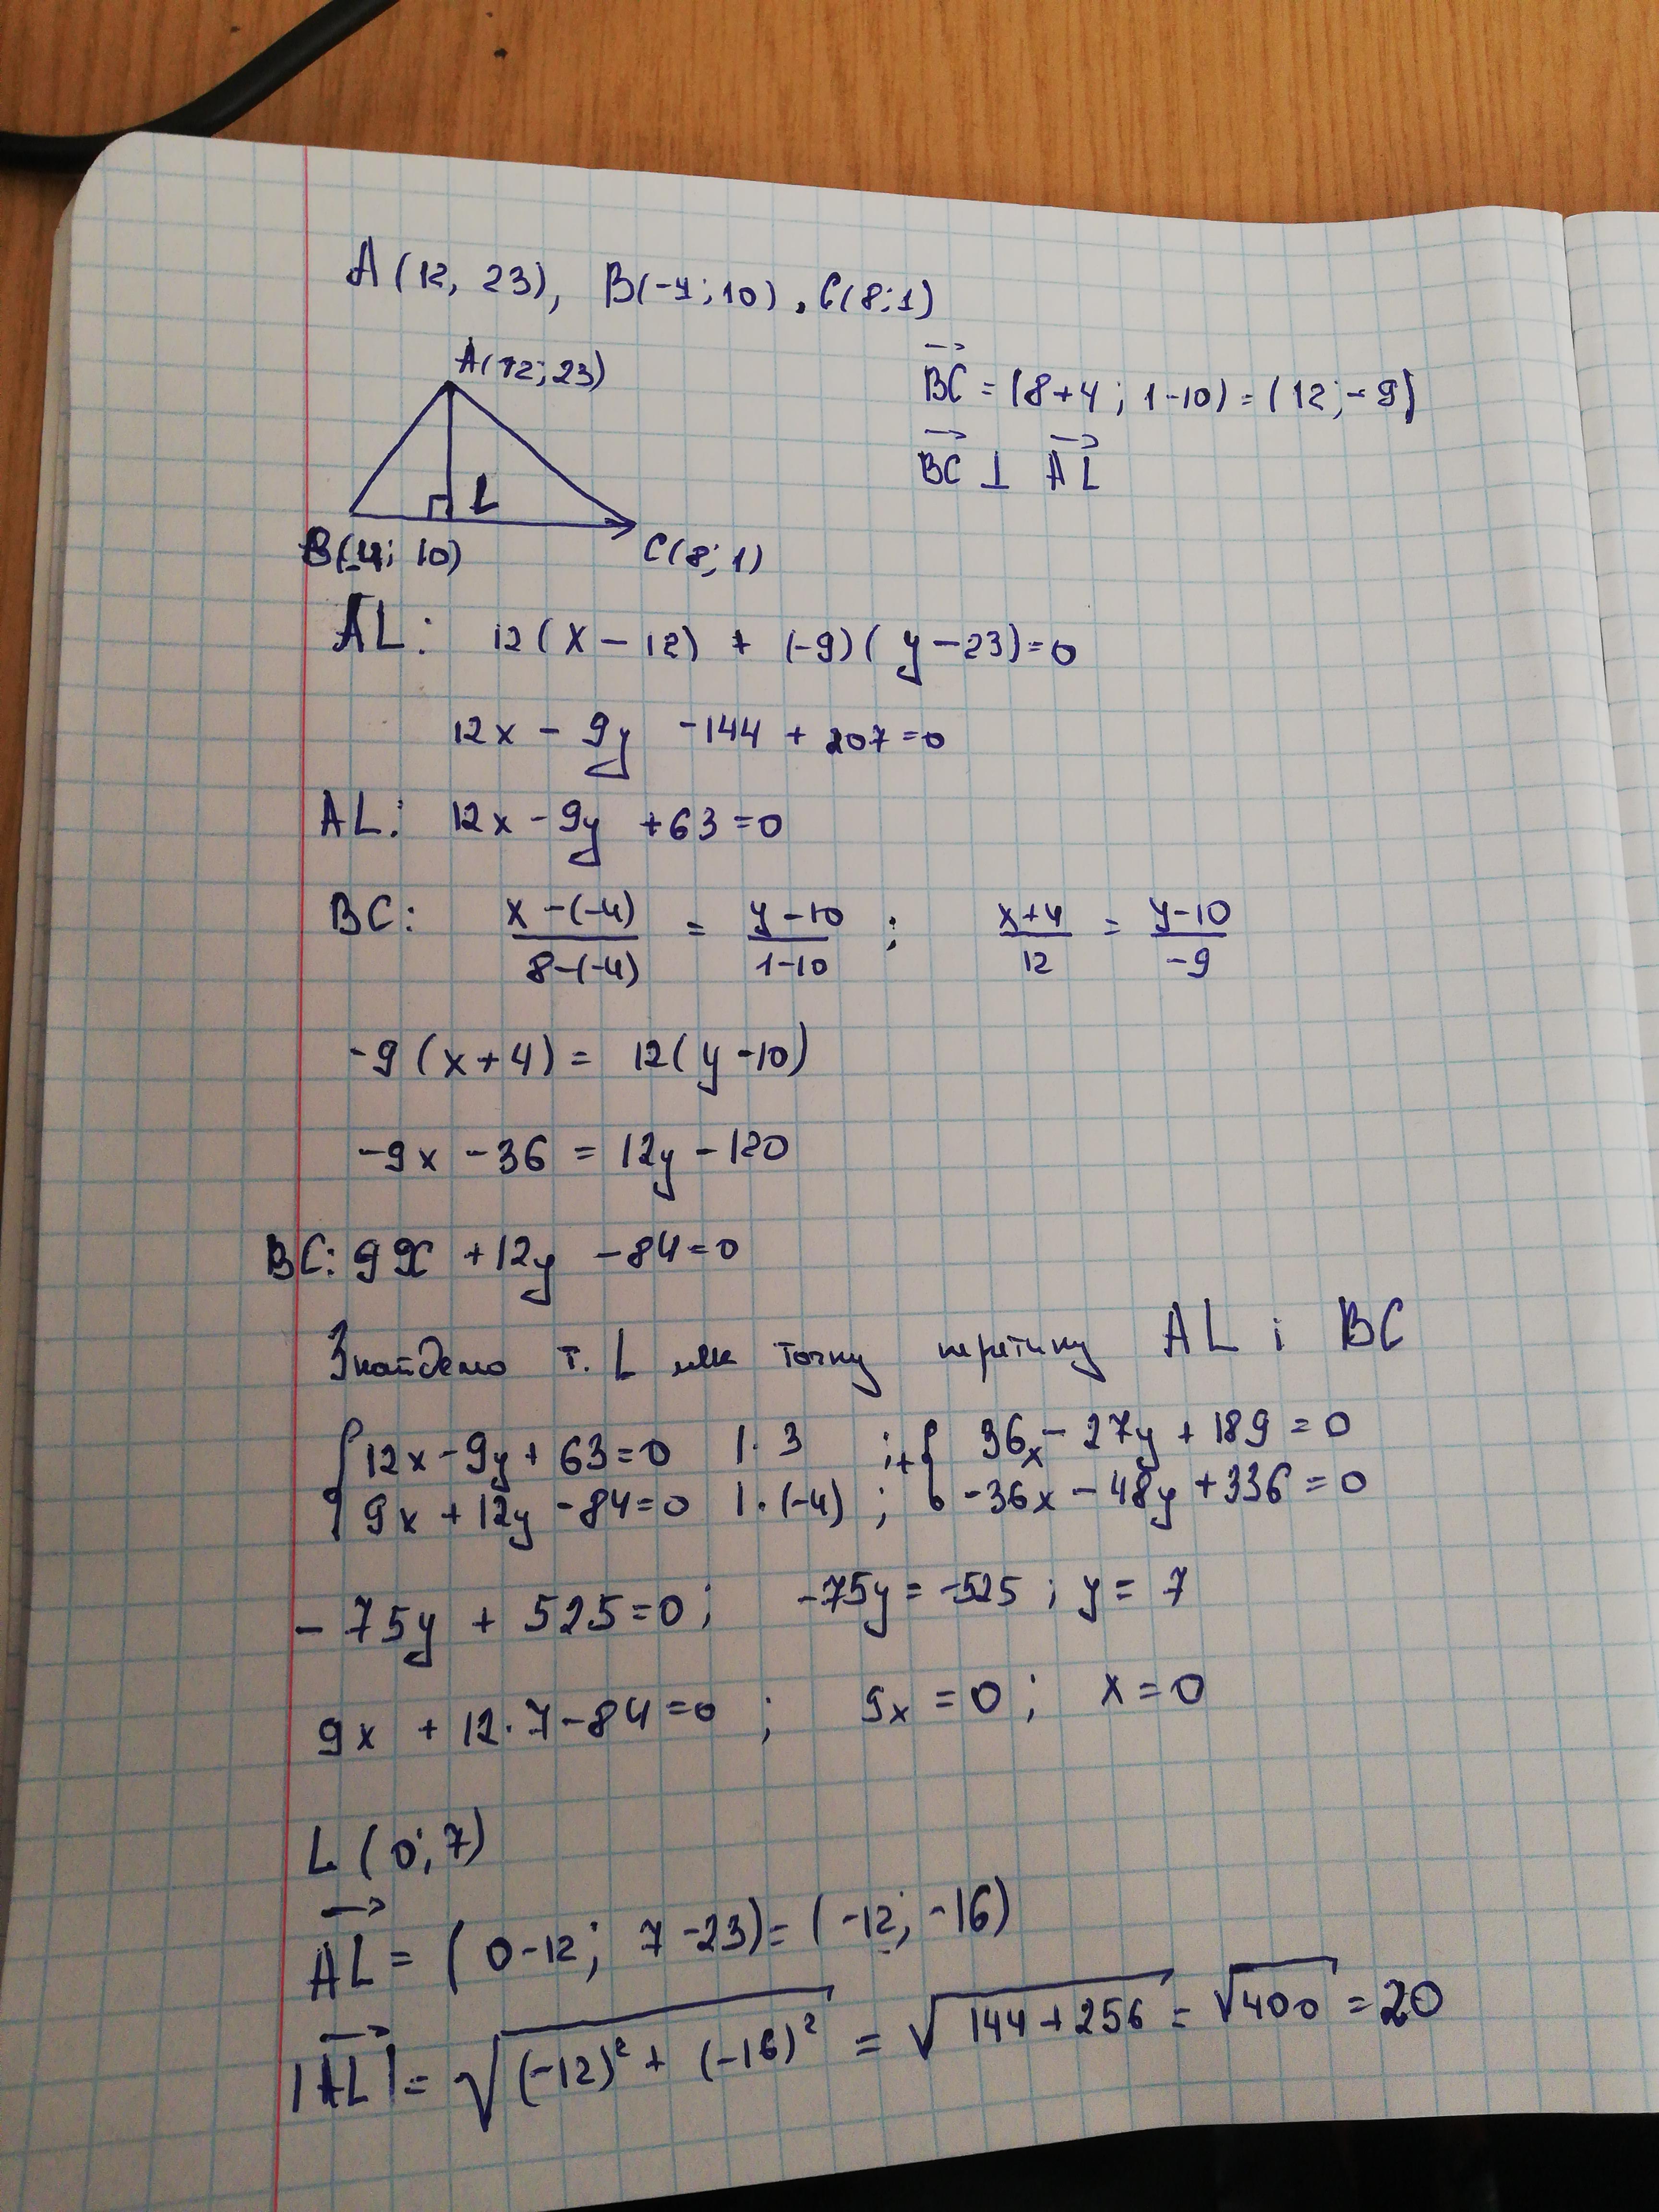 A(12, 23), B(-4; 10), C(8; 1)
A(12; 23)
BC = (8+4; 1-10) = (12; -9)
BC ⊥ AL
L
B(-4; 10)
C(8; 1)
AL: 12(x-12) + (-9)(y-23)=0
12x - 9y -144 + 207=0
AL: 12x - 9y +63=0
BC: x-(-4)/8-(-4) = y-10/1-10 ; x+4/12 = y-10/-9
-9(x+4) = 12(y-10)
-9x -36 = 12y -120
BC: 9x +12y -84=0
Знайдемо т. L як точку перетину AL і BC
{12x-9y+63=0 |·3 ; +{36x-27y+189=0
9x+12y-84=0 |·(-4) ; -36x-48y+336=0
-75y + 525=0; -75y = -525; y = 7
9x + 12·7-84=0 ; 9x = 0; x=0
L (0; 7)
AL = (0-12; 7-23) = (-12; -16)
|AL| = √(-12)² + (-16)² = √144+256 = √400 = 20